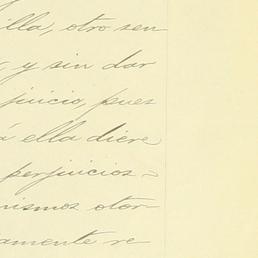 illa, otro sen
, y sin dar
juicio, pues
á ella diere
perjuicios =
mismos otor
amente re